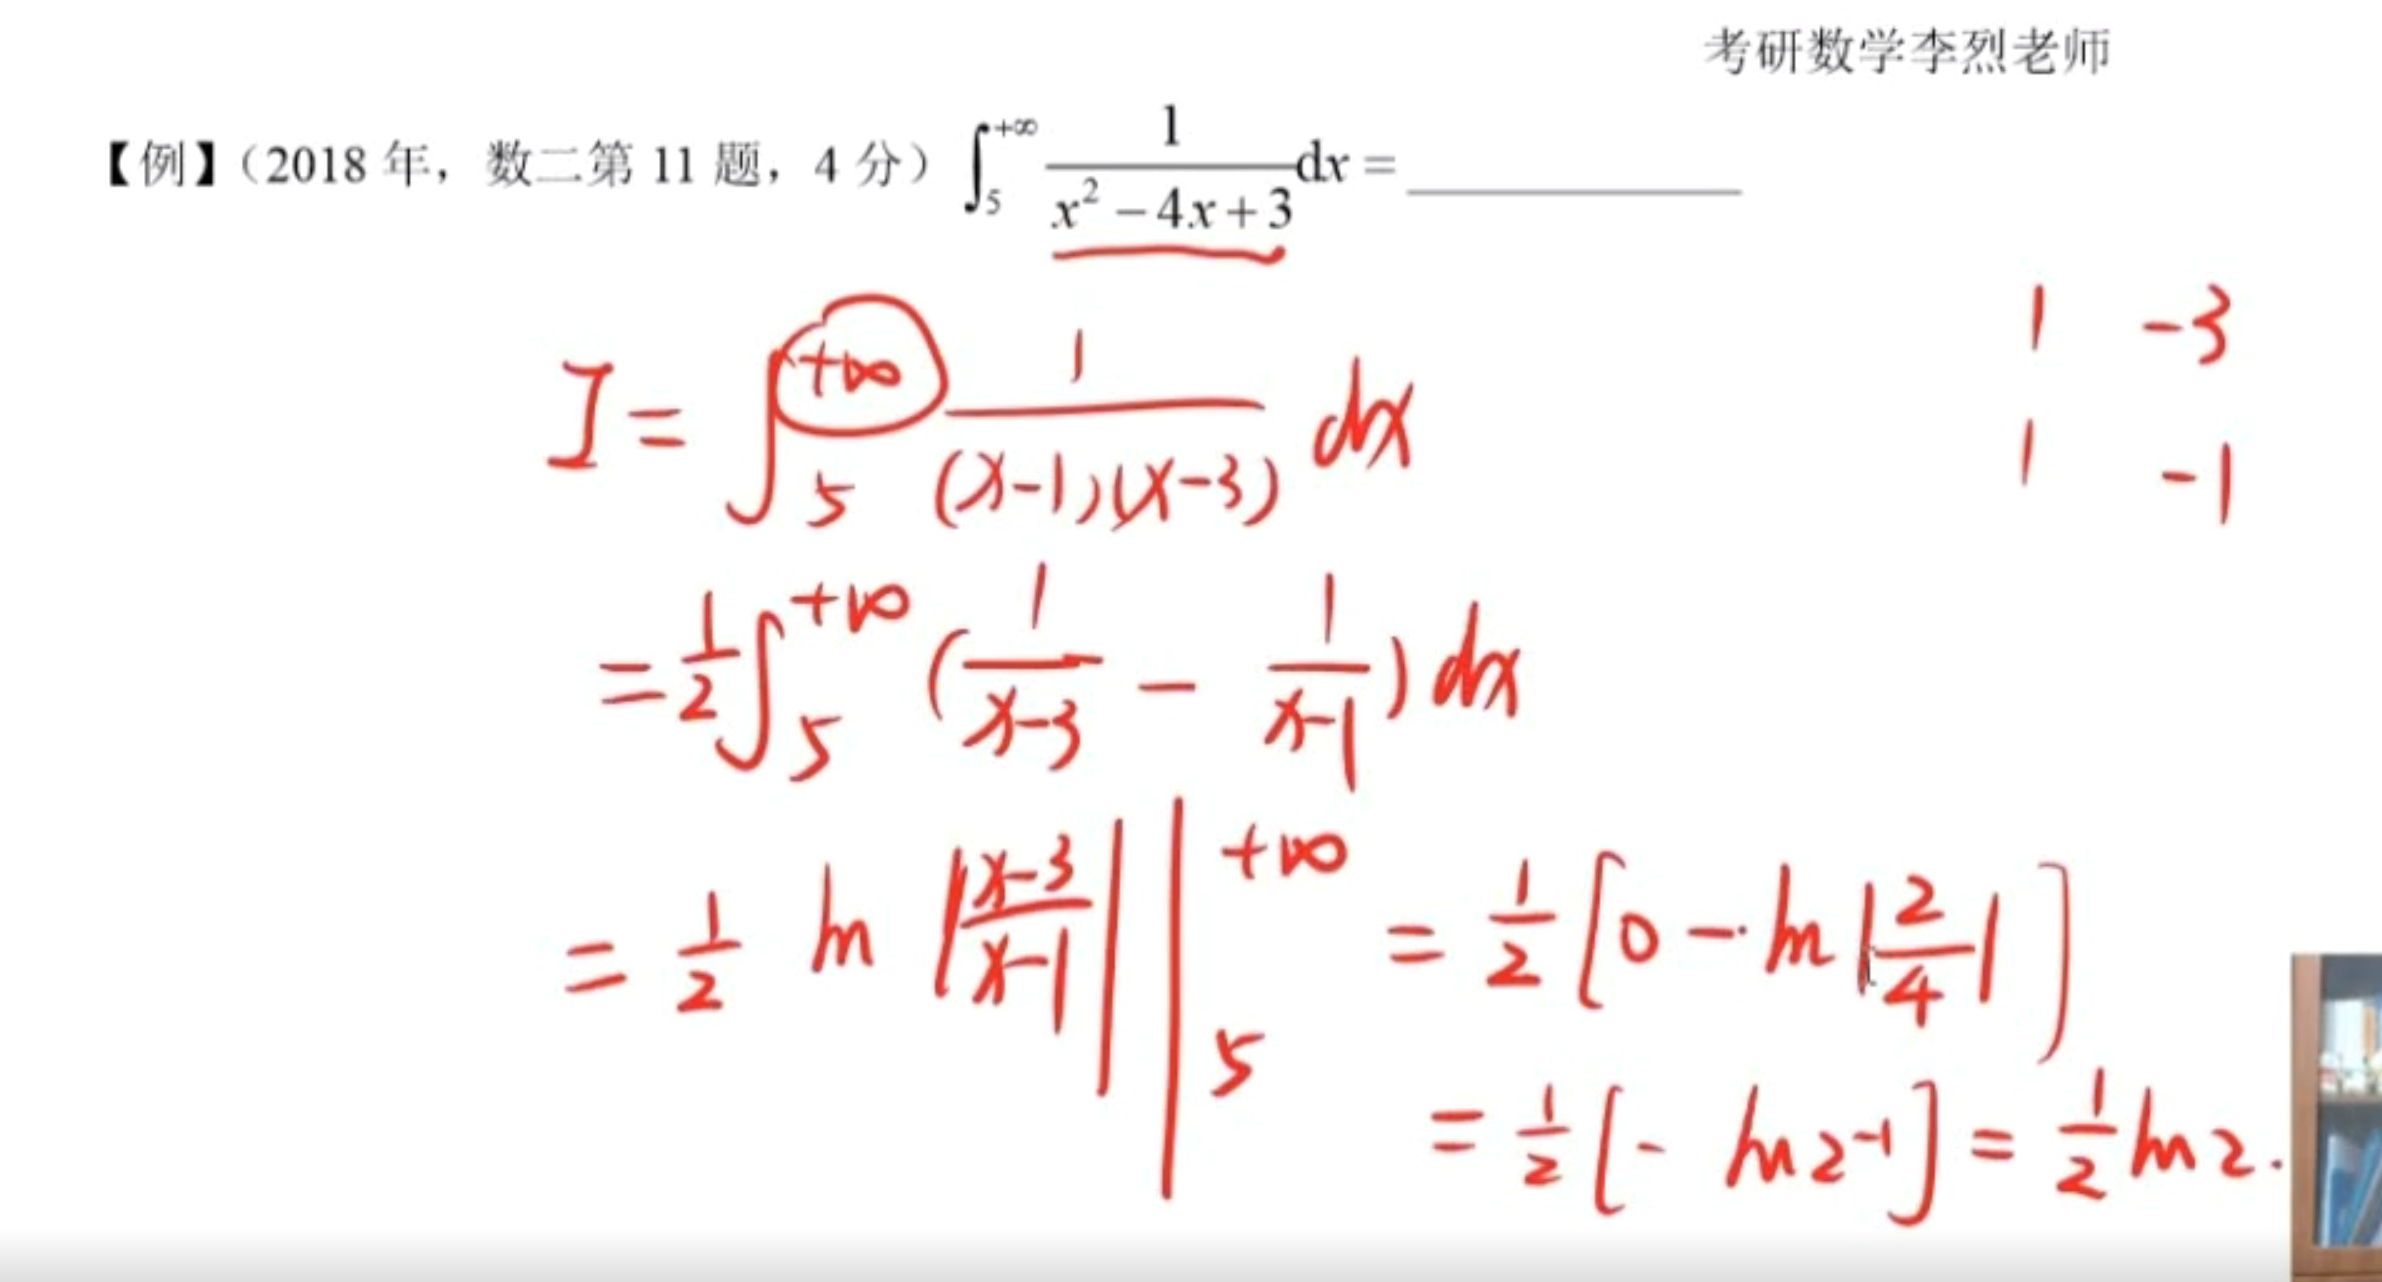 考研数学李烈老师
【例】(2018 年，数二第 11 题，4 分) ∫_5^{+∞} 1/(x² − 4x + 3) dx = ________
1 -3
1 -1
I = ∫_5^{+∞} 1/((x-1)(x-3)) dx
= 1/2 ∫_5^{+∞} (1/(x-3) − 1/(x-1)) dx
= 1/2 ln |(x-3)/(x-1)| |_5^{+∞} = 1/2 [0 − ln |2/4|]
= 1/2 [− ln 2^{-1}] = 1/2 ln 2.